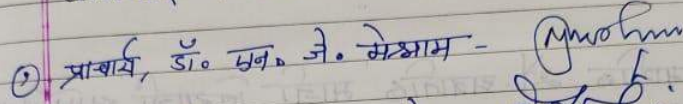 ① प्राचार्य, डॉ. एन. जे. मेश्राम -